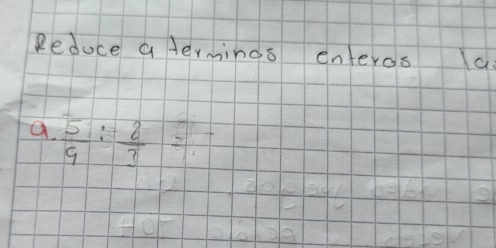 Reduce a terminos enteros la
a. 5/9 : 2/3 =